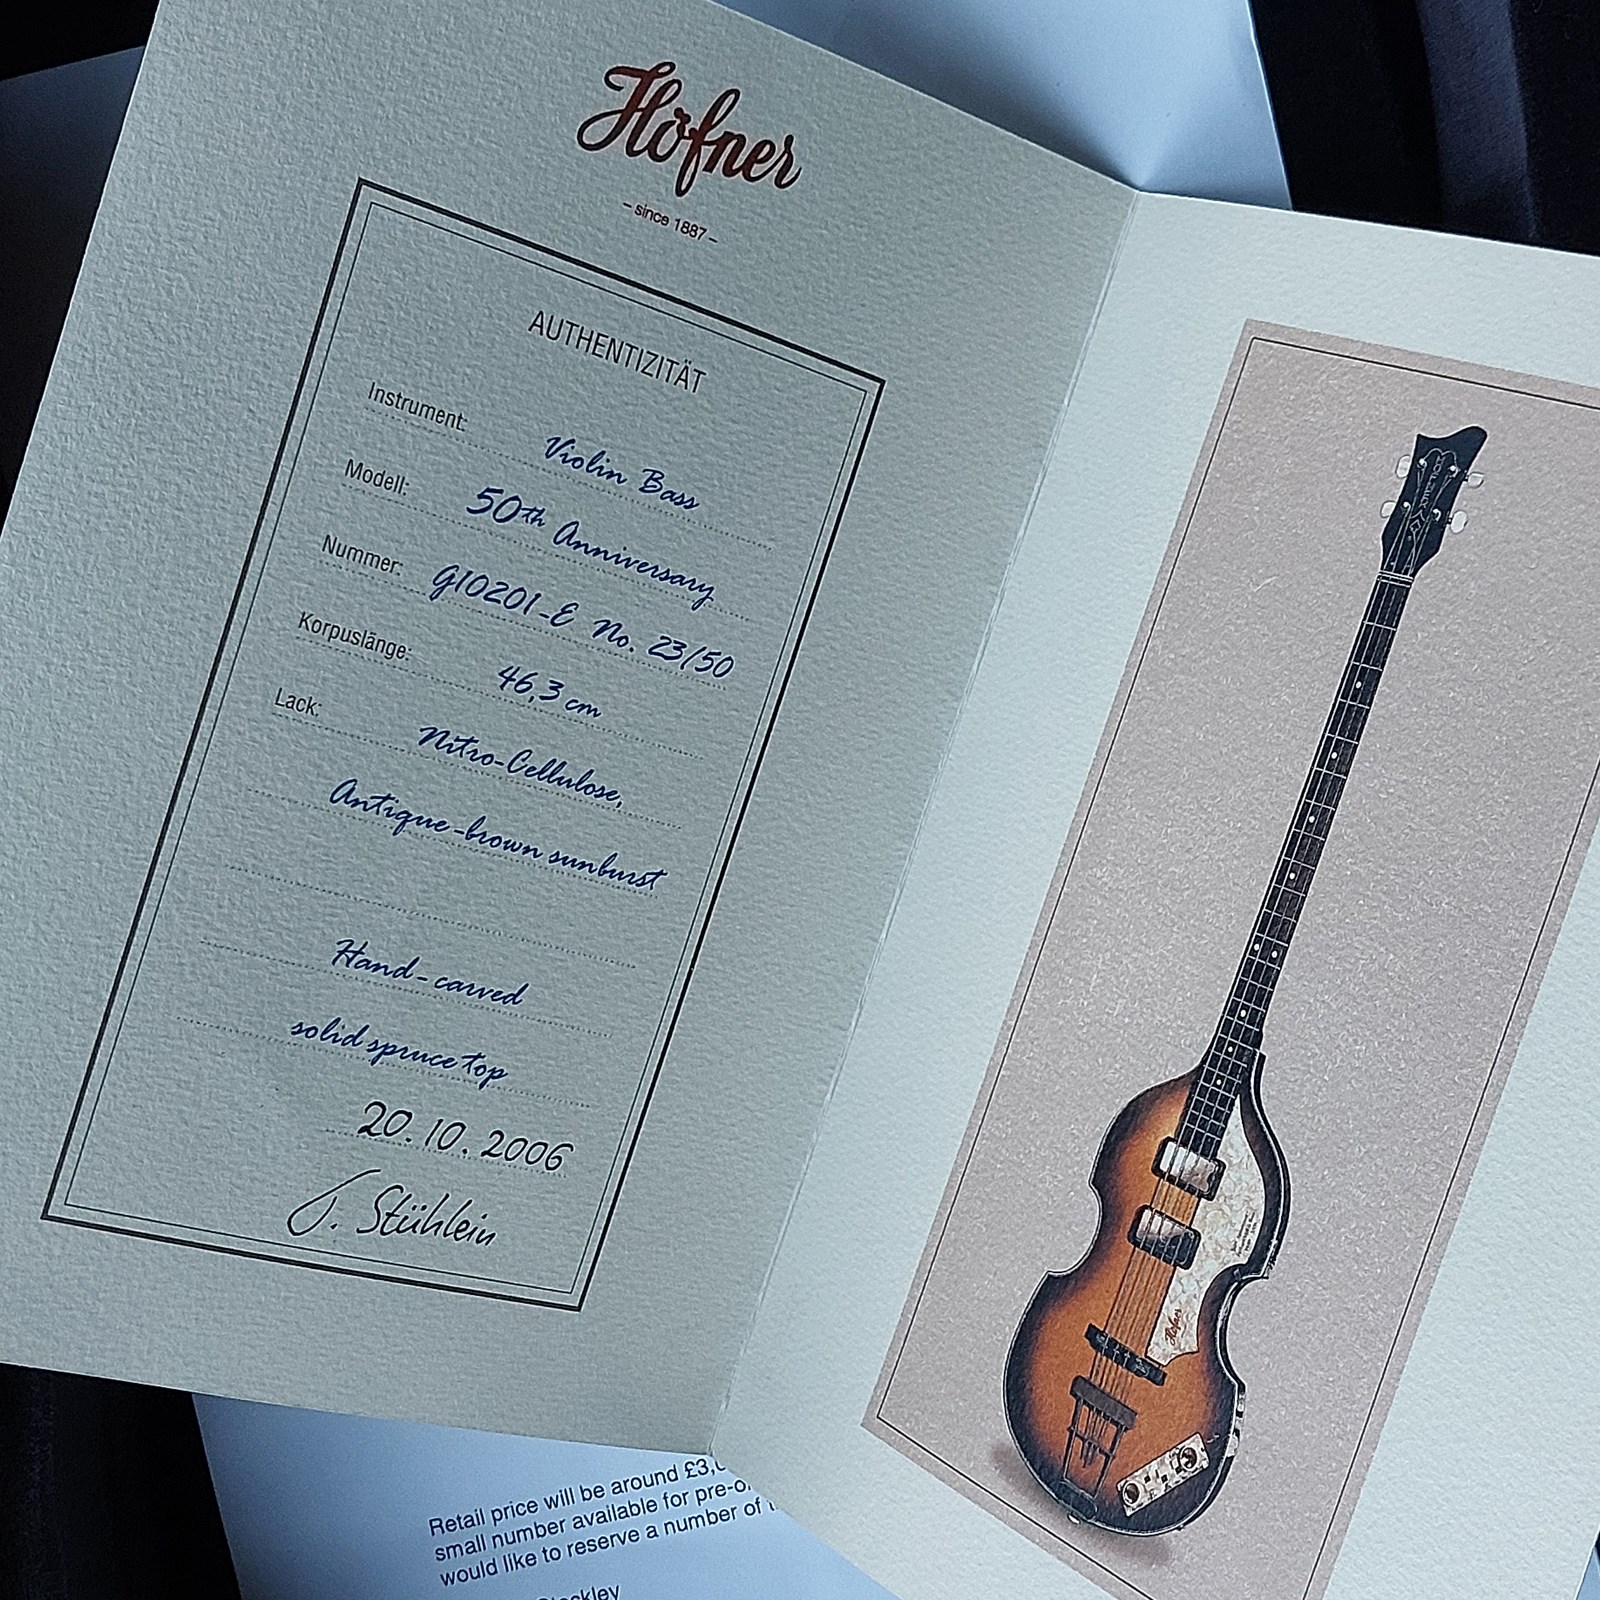 Höfner
– since 1887 –
AUTHENTIZITÄT
Instrument: Violin Bass
Modell: 50th Anniversary
Nummer: G10201-E No. 23/50
Korpuslänge: 46,3 cm
Lack: Nitro-Cellulose,
Antique-brown sunburst
Hand-carved
solid spruce top
20.10.2006
Stühlein
Höfner
Retail price will be around £3,
small number available for
would like to reserve a number of